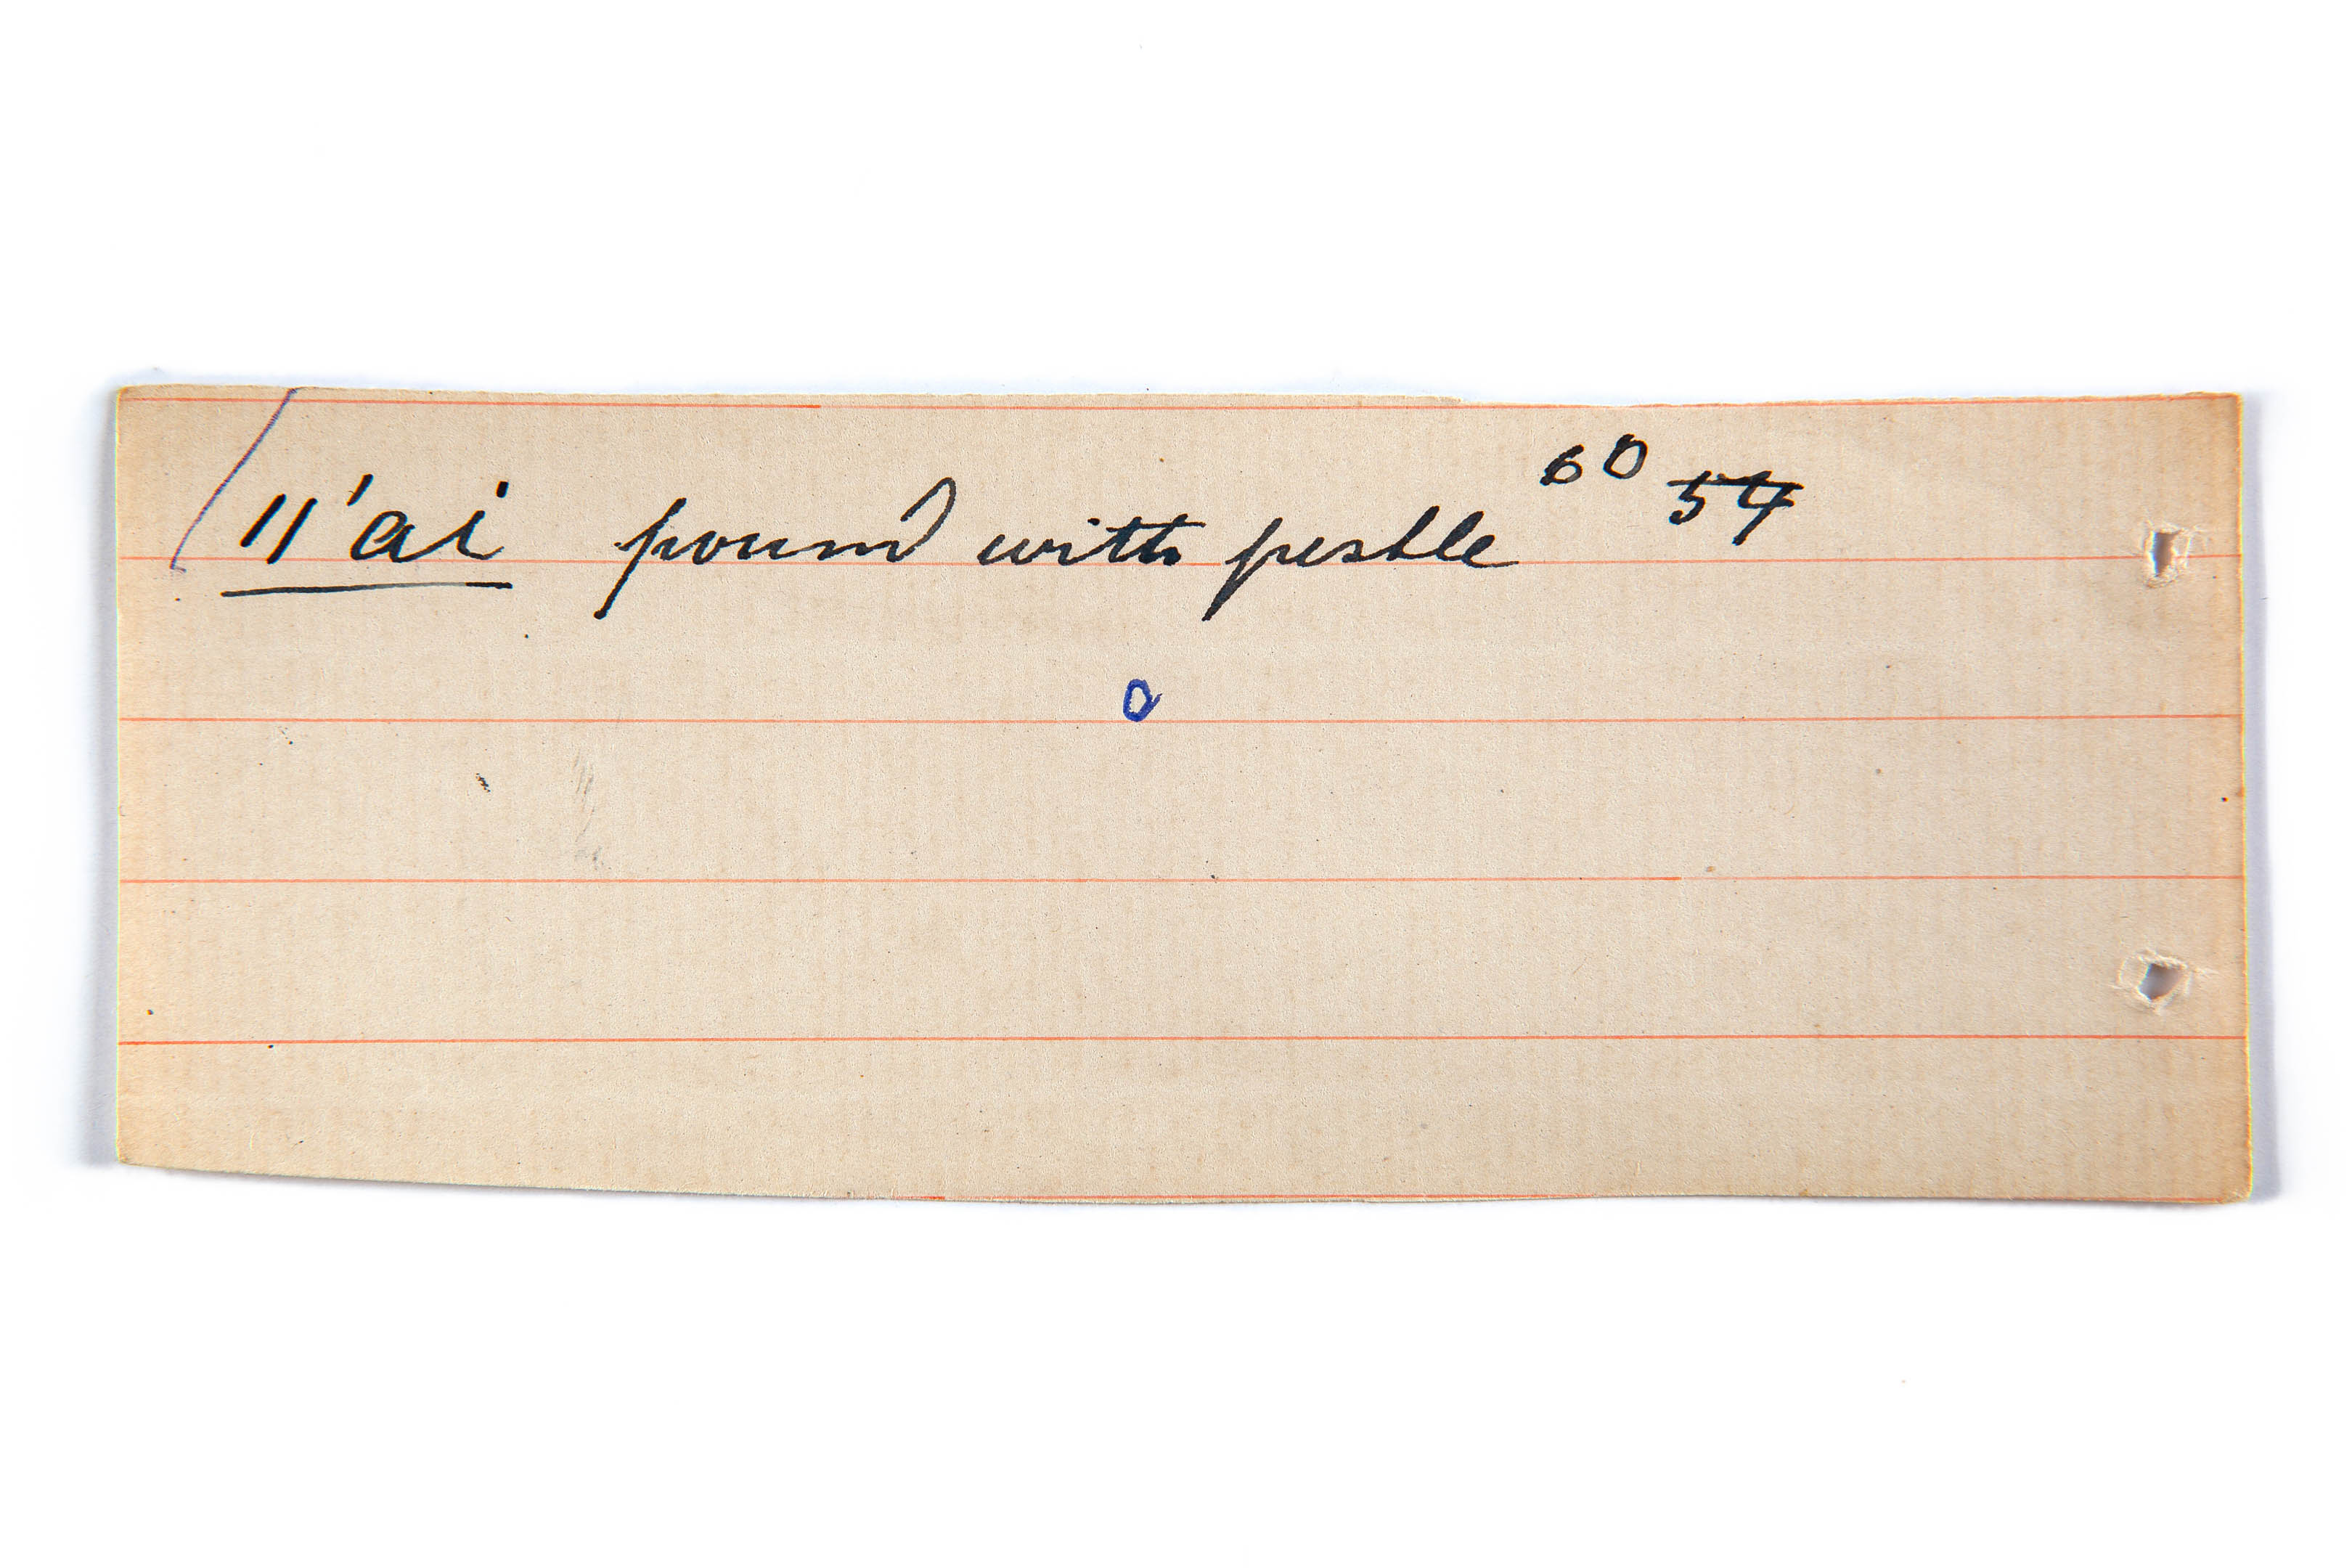 ǁ'ai pound with pestle 60 54
o